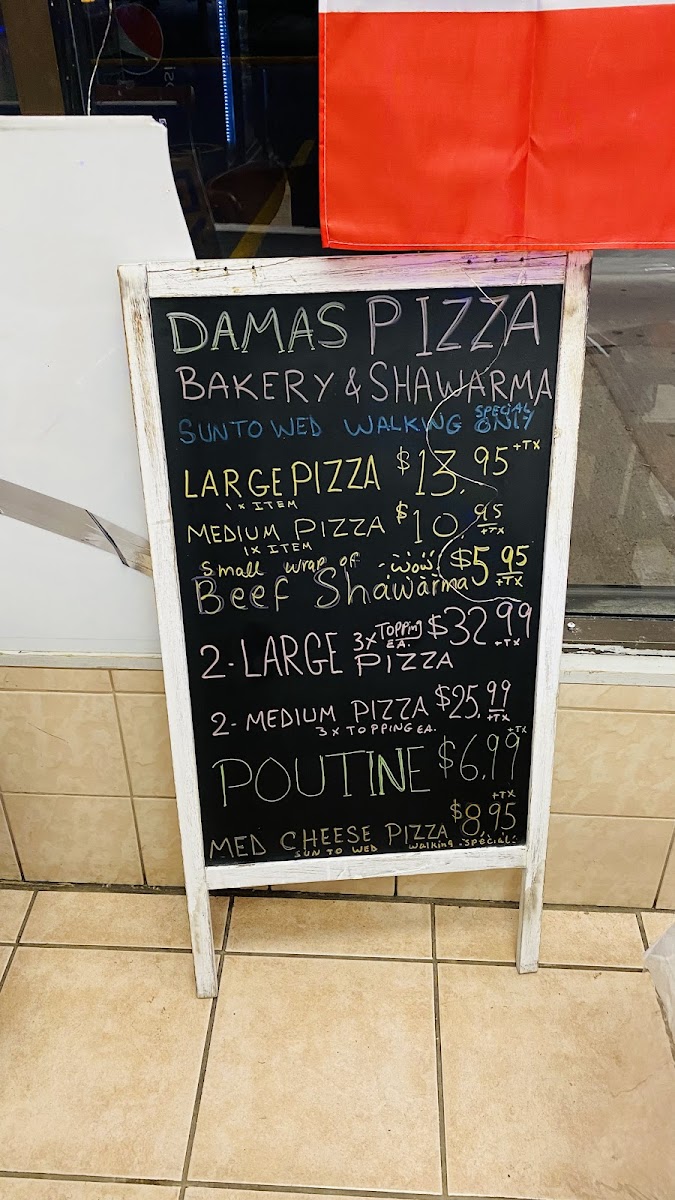 DAMAS PIZZA
BAKERY & SHAWARMA
SUN TO WED WALKING SPECIAL ONLY
LARGE PIZZA $13.95 +TX
1 X ITEM
MEDIUM PIZZA $10.95 +TX
1 X ITEM
Small wrap of - wow! $5.95 +TX
Beef Shawarma
2 - LARGE 3 X TOPPING EA. $32.99 +TX
PIZZA
2 - MEDIUM PIZZA $25.99 +TX
3 X TOPPING EA.
POUTINE $6.99 +TX
MED CHEESE PIZZA $8.95 +TX
SUN TO WED walking special